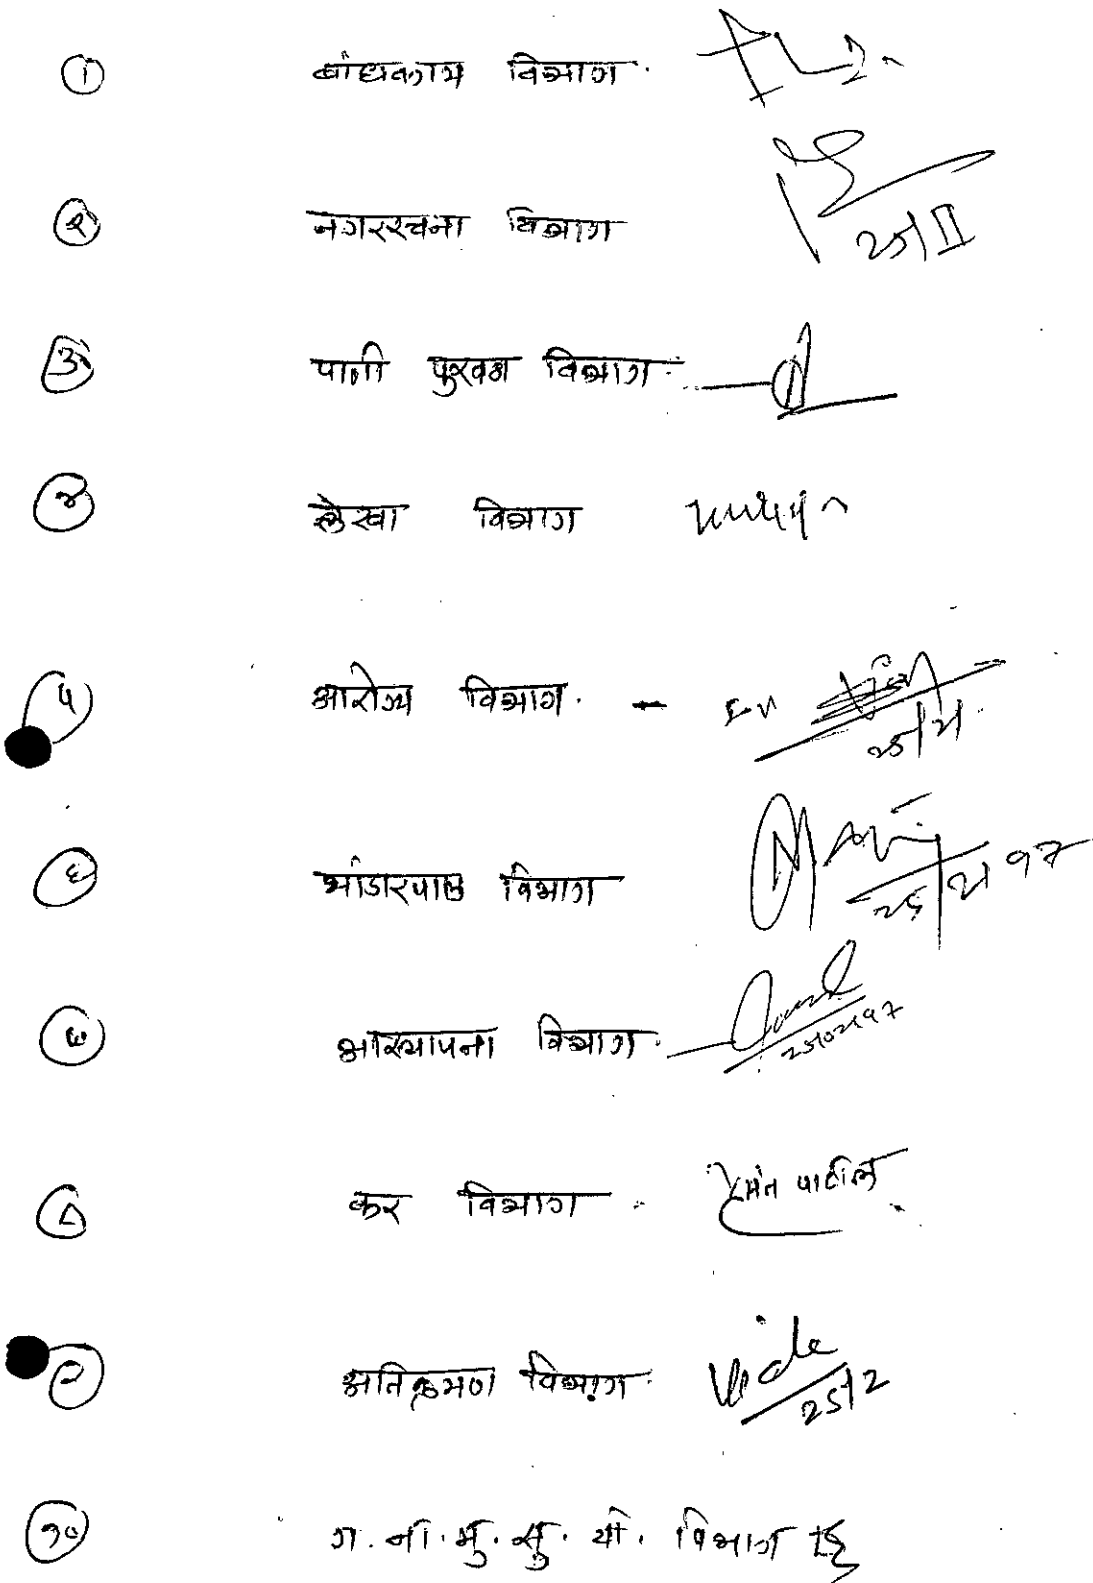 ① बांधकाम विभाग.
② नगररचना विभाग
25/II
③ पाणी पुरवठा विभाग
④ लेखा विभाग
⑤ आरोग्य विभाग. -
25/2
⑥ भांडारपाल विभाग
25/2/97
⑦ आस्थापना विभाग.
25/02/97
⑧ कर विभाग हेमंत पाटील
⑨ अतिक्रमण विभाग.
25/2
⑩ ग. ना. मु. सु. यो. विभाग